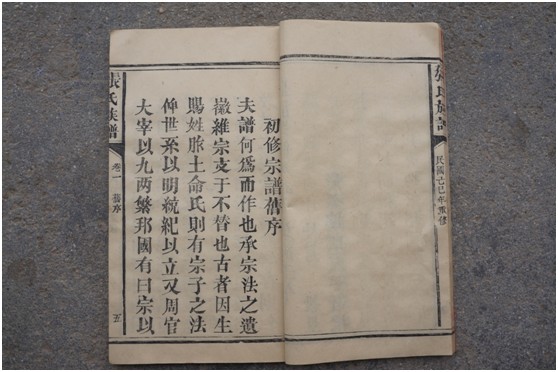 張氏族譜
民國己巳年重修
初修宗譜舊序
夫譜何為而作也承宗法之遺
徽維宗支于不替也古者因生
賜姓胙土命氏則有宗子之法
俾世系以明統紀以立又周官
大宰以九两繫邦國有曰宗以
張氏族譜
卷一
舊序
五